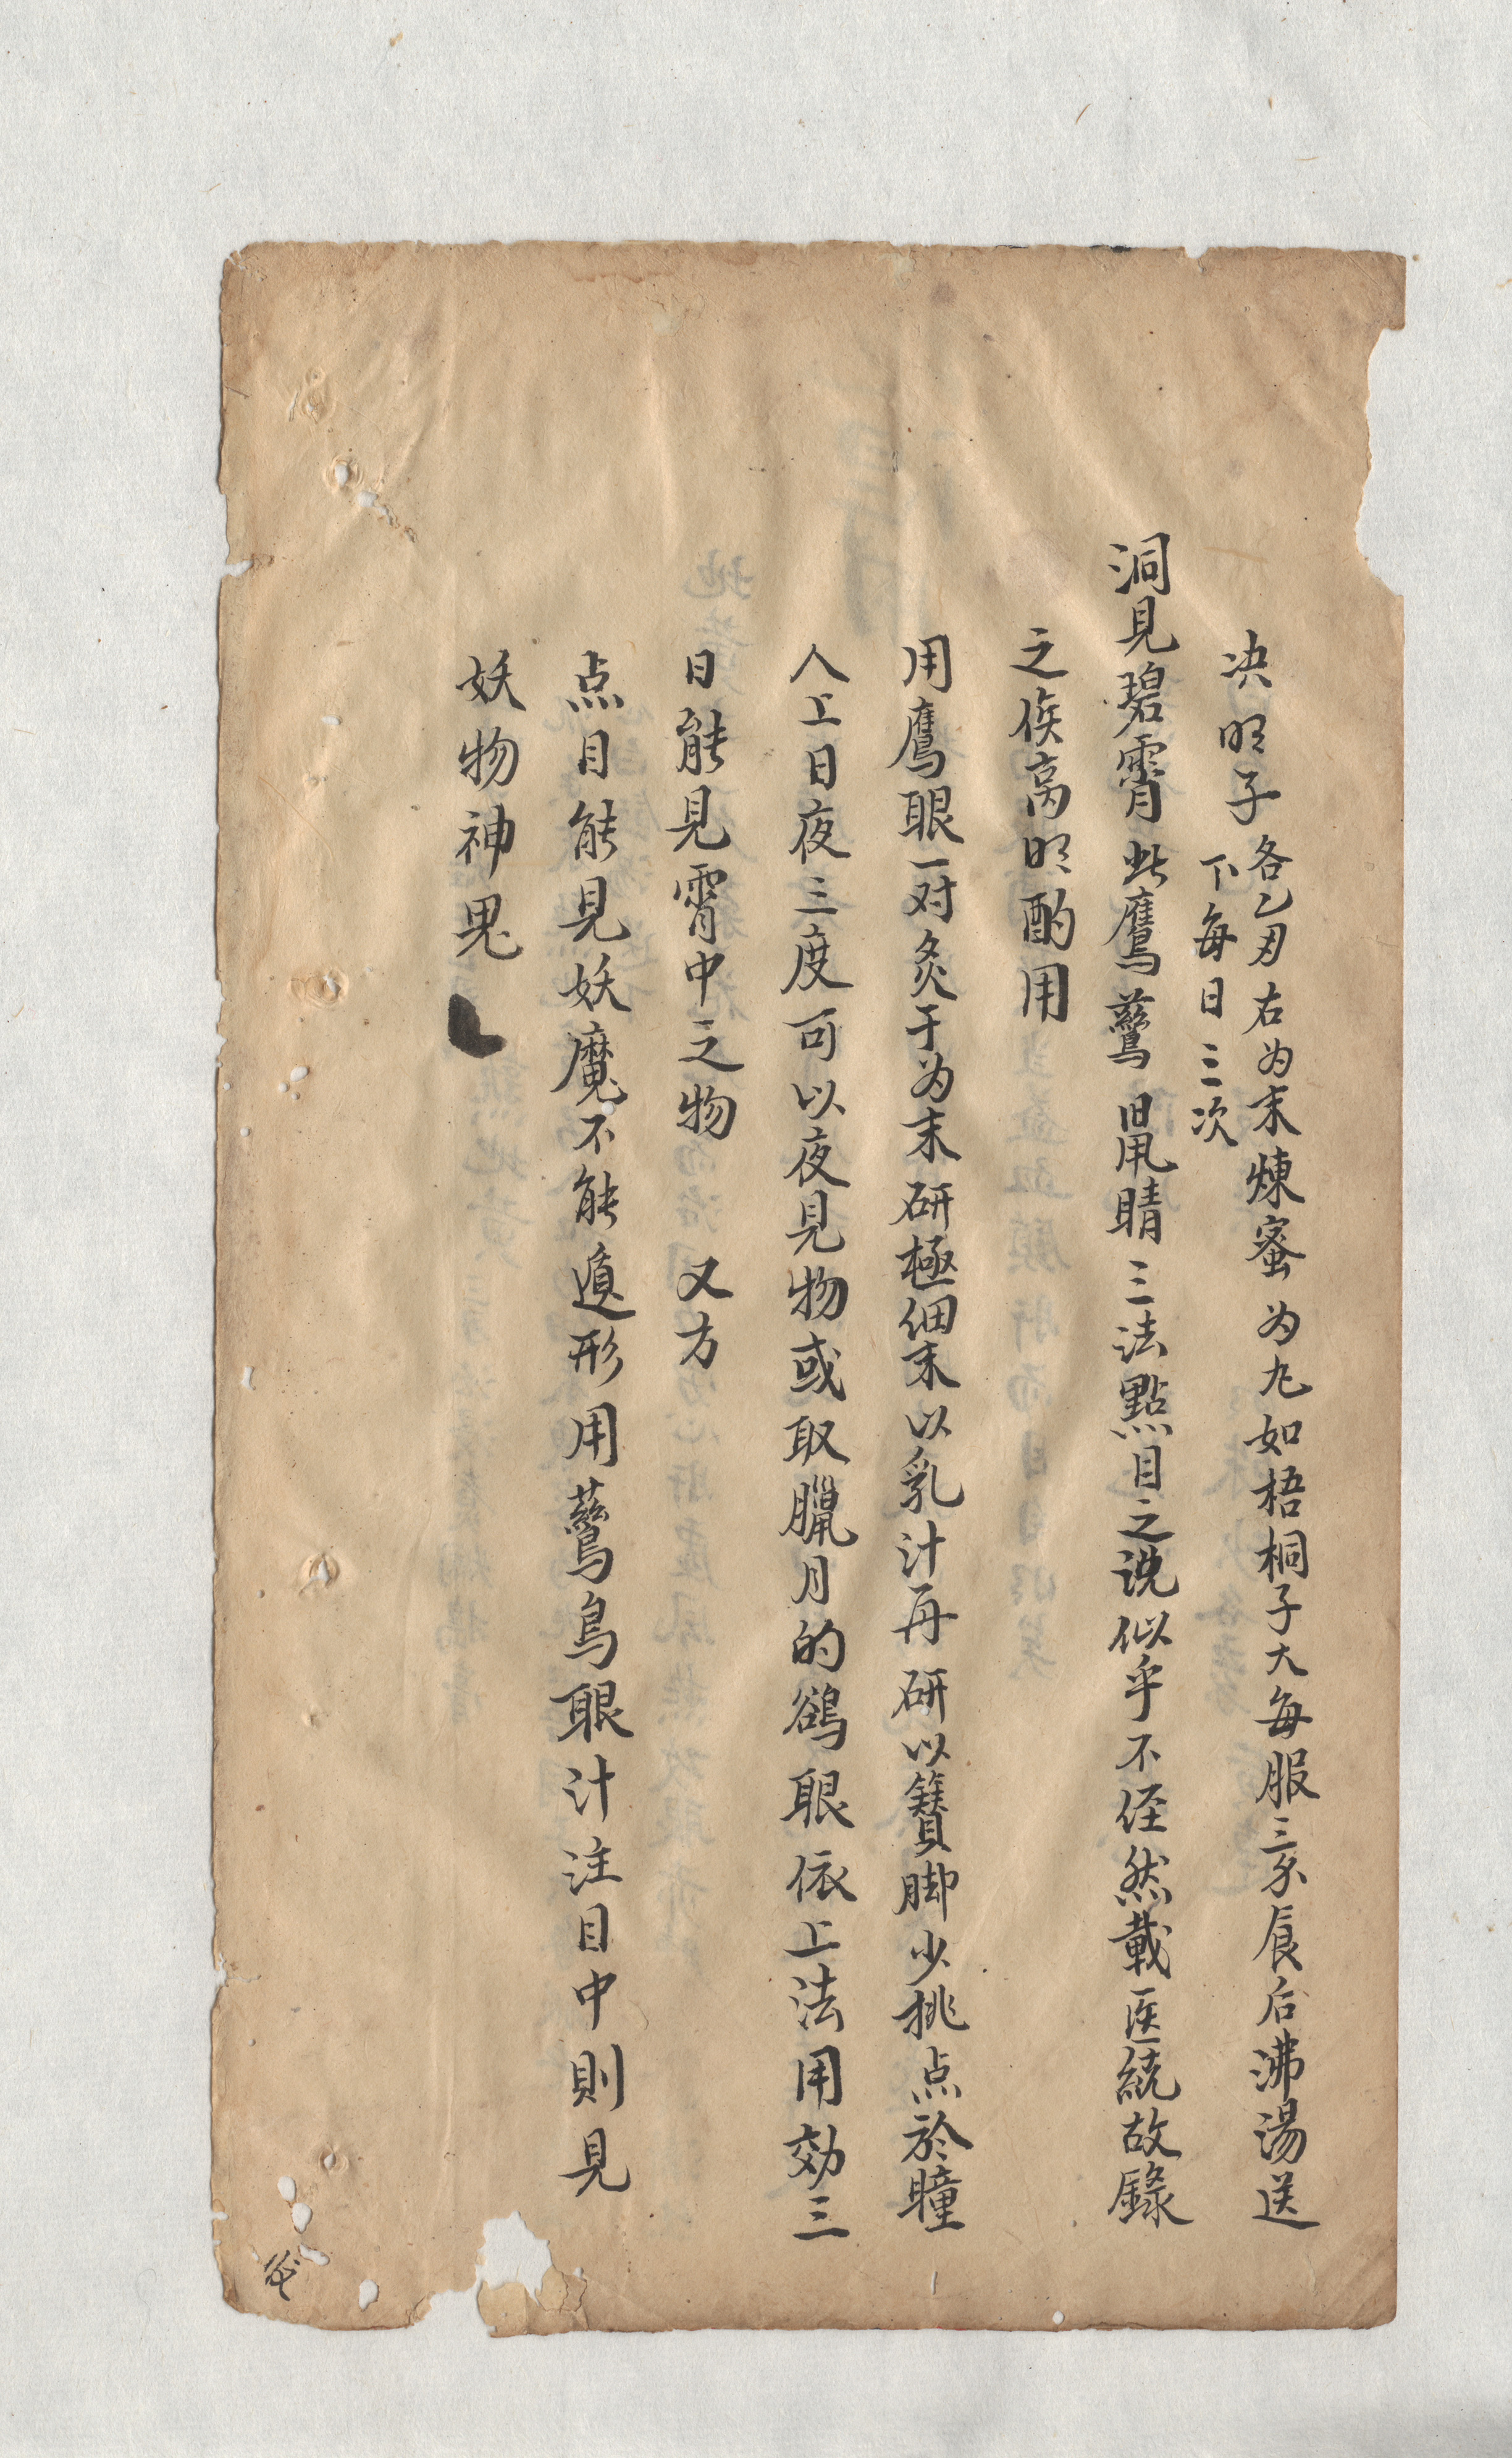 决明子各乙刄右为末煉蜜为丸如梧桐子大每服三条食后沸湯送
下每日三次
洞見碧霄此鷹鷀鼠睛三法點目之说似乎不侄然載医統故録
之俟高明酌用
用鷹眼一对炙干为末研極细末以乳汁再研以簪脚少挑点於瞳
人上日夜三度可以夜見物或取臘月的鵒眼依上法用効三
日能見霄中之物　又方
点目能見妖魔不能遁形用鷀鳥眼汁注目中則見
妖物神鬼